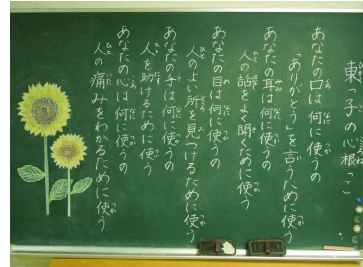 東っ子の心根っこ
あなたの口は何に使うの
「ありがとう」を言うために使う
あなたの耳は何に使うの
人の話をよく聞くために使う
あなたの目は何に使うの
人のよい所を見つけるために使う
あなたの手は何に使うの
人を助けるために使う
あなたの心は何に使うの
人の痛みをわかるために使う